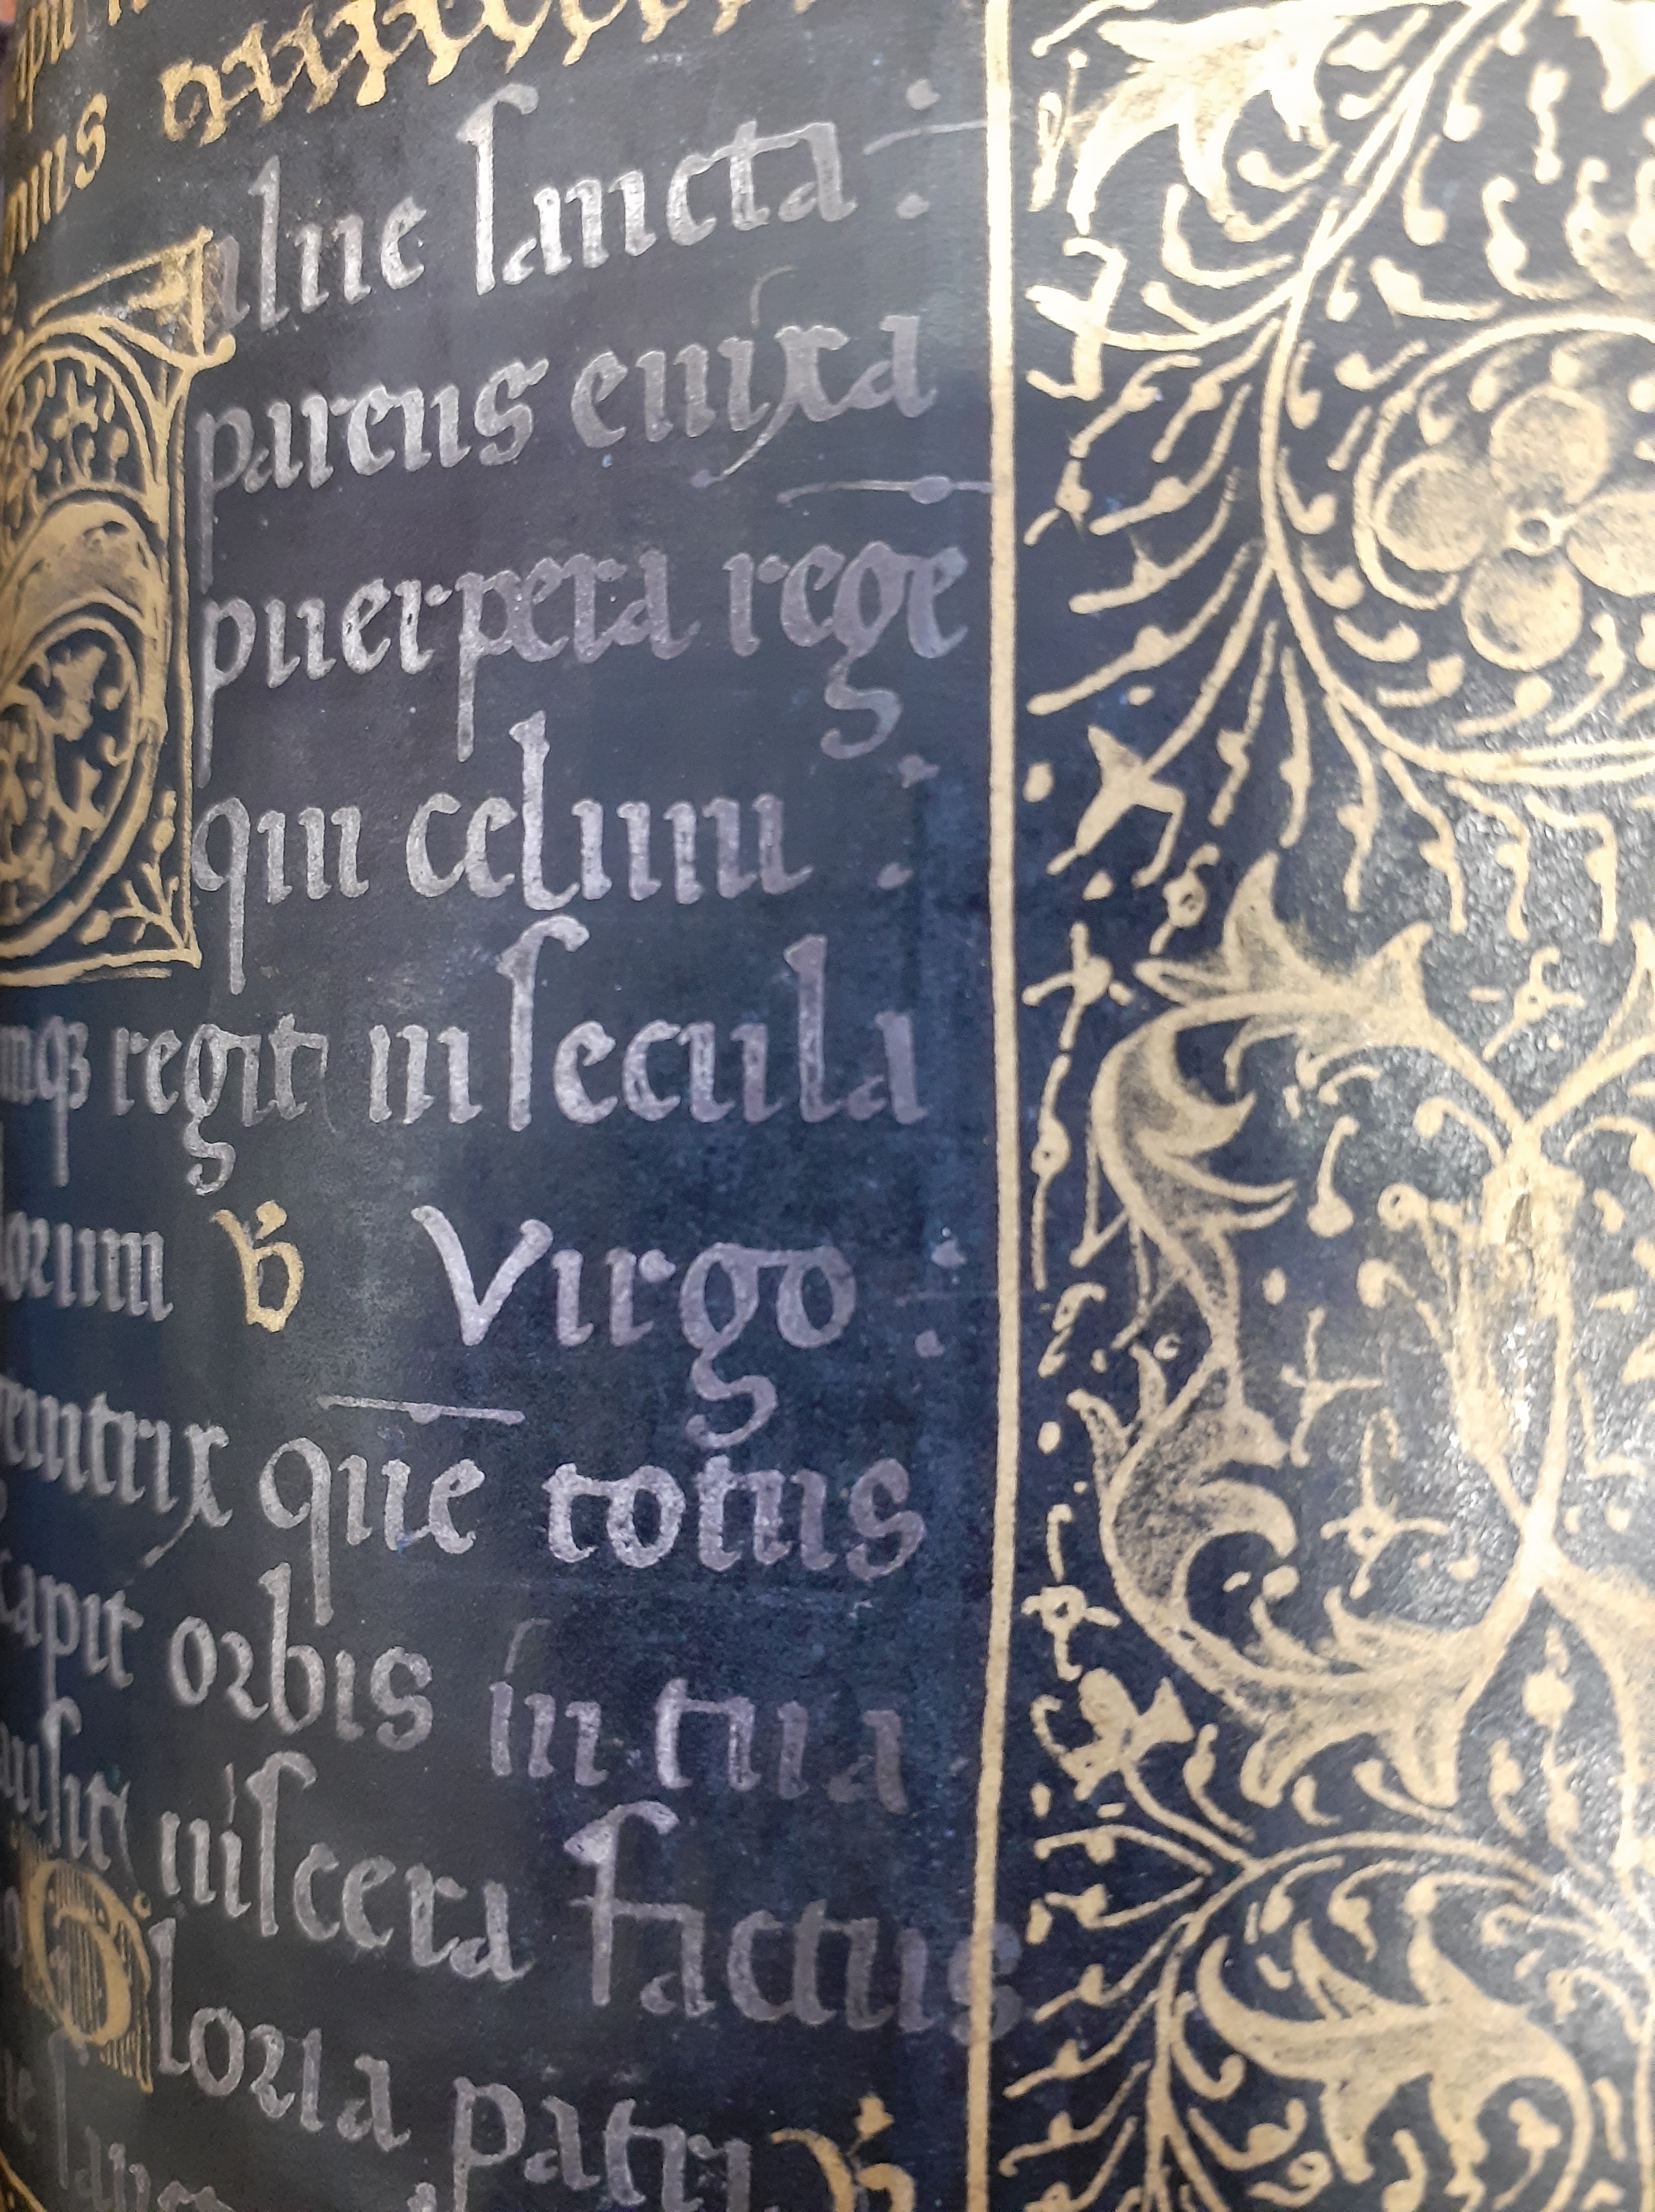 alue sancta :
parens enixa
puerpera rege
qui celum :
regit in secula
℣ Virgo :
que totus
capit orbis in tua
uiscera factus
Gloria patri ℣